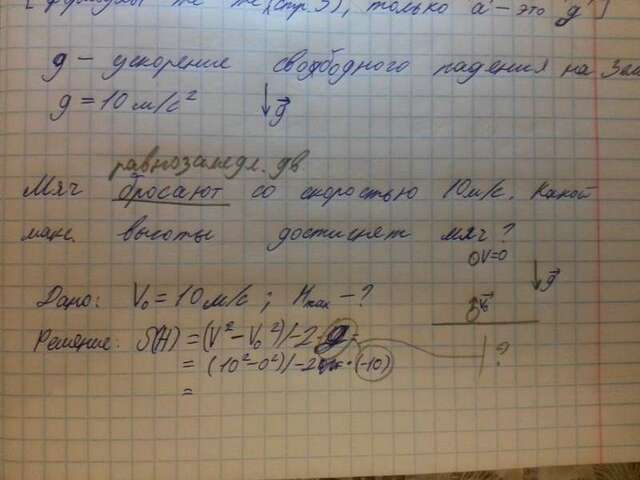 [формулы те же (стр.3), только a - это g]
g - ускорение свободного падения на Зем
g = 10 м/с² ↓g⃗
равнозамедл. дв
Мяч бросают со скоростью 10м/с. Какой
макс. высоты достигнет мяч?
V=0
g⃗
Дано: V₀ = 10 м/с ; Hmax - ?
Решение: S(H) = (V² - V₀²)/-2 g
= (10² - 0²)/-2 · (-10)
?
=